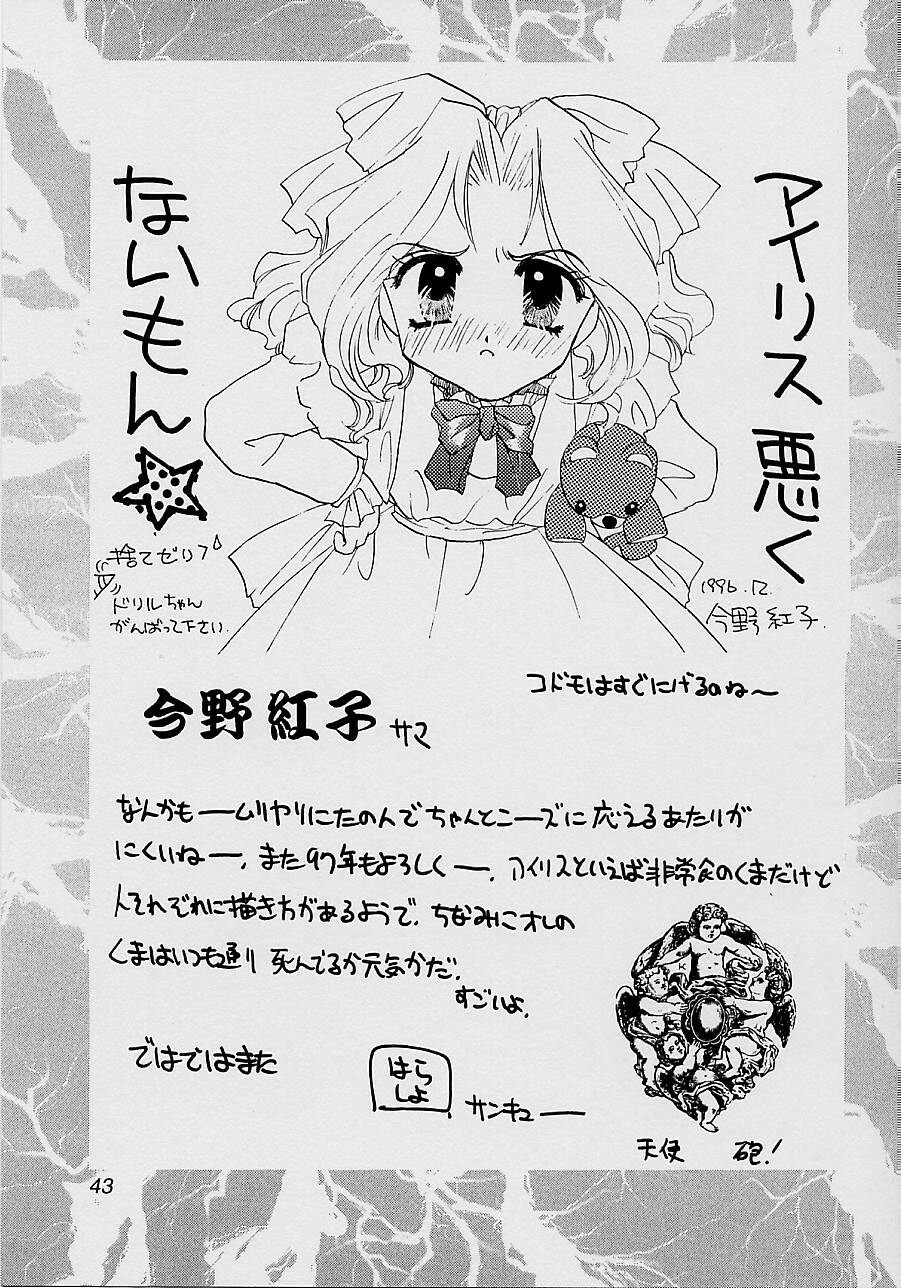 アイリス悪く
ないもん
捨てゼリフ
ドリルちゃん
がんばって下さい.
1996.12.
今野紅子.
コドモはすぐにげるのね〜
今野紅子サマ
なんかもームリヤリにたのんでちゃんとニーズに応えるあたりが
にくいねー.また97年もよろしくー.アイリスといえば非常食のくまだけど
人それぞれに描き方があるようで.ちなみにオレの
くまはいつも通り死んでるか元気かだ.
すごいよ.
ではではまた
はら
しよ
サンキューー
天使 砲!
43